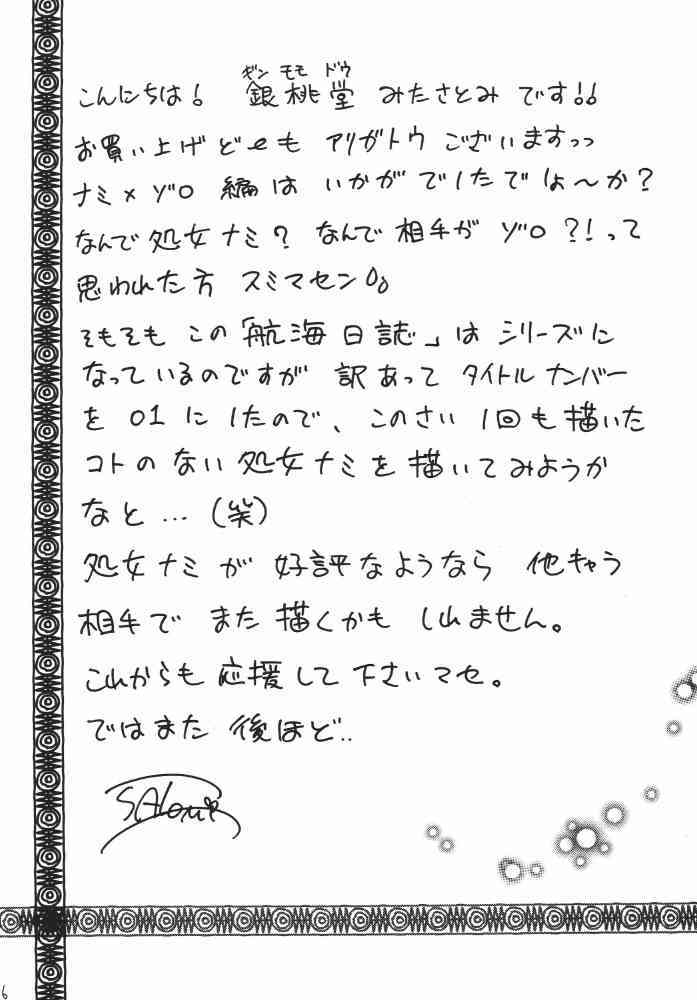 ギンモモドウ
こんにちは! 銀桃堂 みたさとみ です!!
お買い上げどーも アリガトウ ございますっっ
ナミ×ゾロ 編は いかが でしたでしょ〜か?
なんで 処女ナミ? なんで 相手が ゾロ ?! って
思われた方 スミマセン
そもそも この「航海日誌」は シリーズに
なっているのですが 訳あって タイトルナンバー
を 01 に したので、このさい 1回も描いた
コトの ない 処女ナミを 描いてみようか
なと … (笑)
処女ナミが 好評なようなら 他キャラ
相手で また描くかも しれません。
これからも 応援して 下さいマセ。
ではまた 後ほど..
SAtomi
6